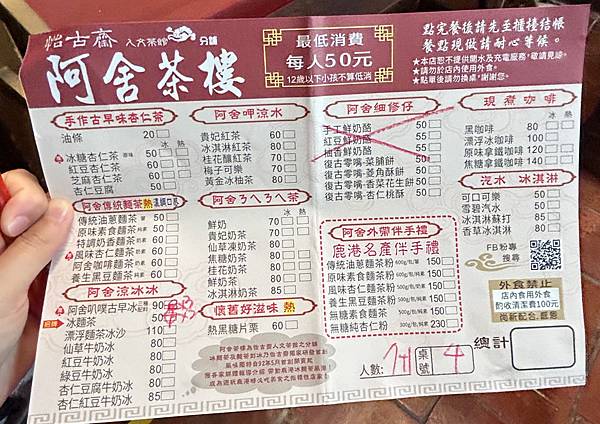 怡古齋 人文茶館 分鋪
阿舍茶樓
最低消費
每人50元
12歲以下小孩不算低消
點完餐後請先至櫃檯結帳
餐點現做請耐心等候。
★本店恕不提供開水及充電服務,敬請見諒。
★請勿於店內使用外食。
★點單後請勿換桌,謝謝您。
手作古早味杏仁茶
油條 20
冰 熱
冰糖杏仁茶 50
紅豆杏仁茶 60
芝麻杏仁茶 60
杏仁豆腐 50
阿舍傳統麵茶 熱
傳統油蔥麵茶 葷 50
原味素食麵茶 純素 50
特調奶香麵茶 奶素 60
風味杏仁麵茶 奶素 60
阿舍咖啡麵茶 奶素 60
養生黑豆麵茶 純素 60
阿舍涼冰冰
阿舍叭噗古早冰 三種配料 90
招牌 冰麵茶 50
漂浮麵茶冰沙 110
仙草牛奶冰 80
紅豆牛奶冰 80
綠豆牛奶冰 80
杏仁豆腐牛奶冰 80
杏仁紅豆牛奶冰 85
阿舍呷涼水
貴妃紅茶 60
冰淇淋紅茶 85
桂花釀紅茶 70
梅子可樂 70
黃金冰柚茶 80
阿舍ㄋㄟㄋㄟ茶
冰 熱
鮮奶 70
貴妃奶茶 70
仙草凍奶茶 80
焦糖奶茶 80
桂花奶茶 80
鮮奶茶 80
冰淇淋奶茶 85
懷舊好滋味 熱
熱黑糖片栗 60
阿舍細修仔
手工鮮奶酪 50
紅豆鮮奶酪 55
柚香鮮奶酪 55
復古零嘴-菜脯餅 50
復古零嘴-菱角酥餅 50
復古零嘴-香菜花生餅 50
復古零嘴-杏仁桃酥 50
阿舍外帶伴手禮
鹿港名產伴手禮
傳統油蔥麵茶粉 600g/包/葷 150
原味素食麵茶粉 600g/包/純素 150
風味杏仁麵茶粉 500g/包/奶素 150
養生黑豆麵茶粉 500g/包/純素 150
無糖素食麵茶粉 150
無糖純杏仁粉 230
現煮咖啡
冰 熱
黑咖啡 80
漂浮冰咖啡 100
原味拿鐵咖啡 120
焦糖拿鐵咖啡 140
汽水 冰淇淋
可口可樂 50
雪碧汽水 50
冰淇淋蘇打 85
香草冰淇淋 80
FB粉專
搜尋
外食禁止
店內食用外食
酌收清潔費100元
人數:
桌號 4
總計